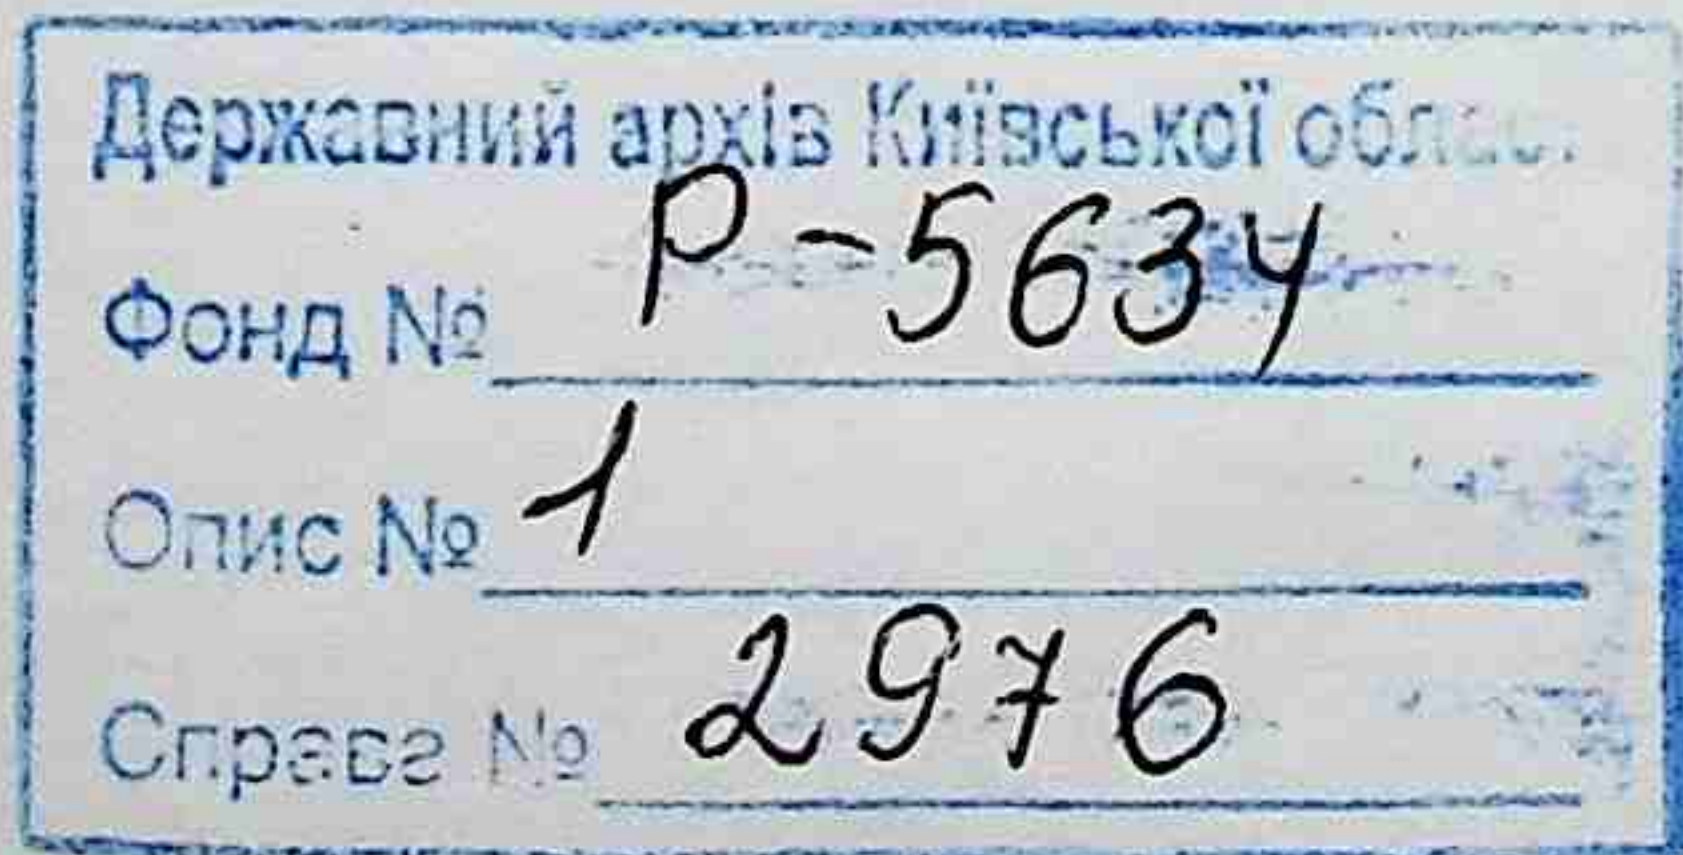 Державний архів Київської област
Фонд № Р-5634
Опис № 1
Справа № 2976